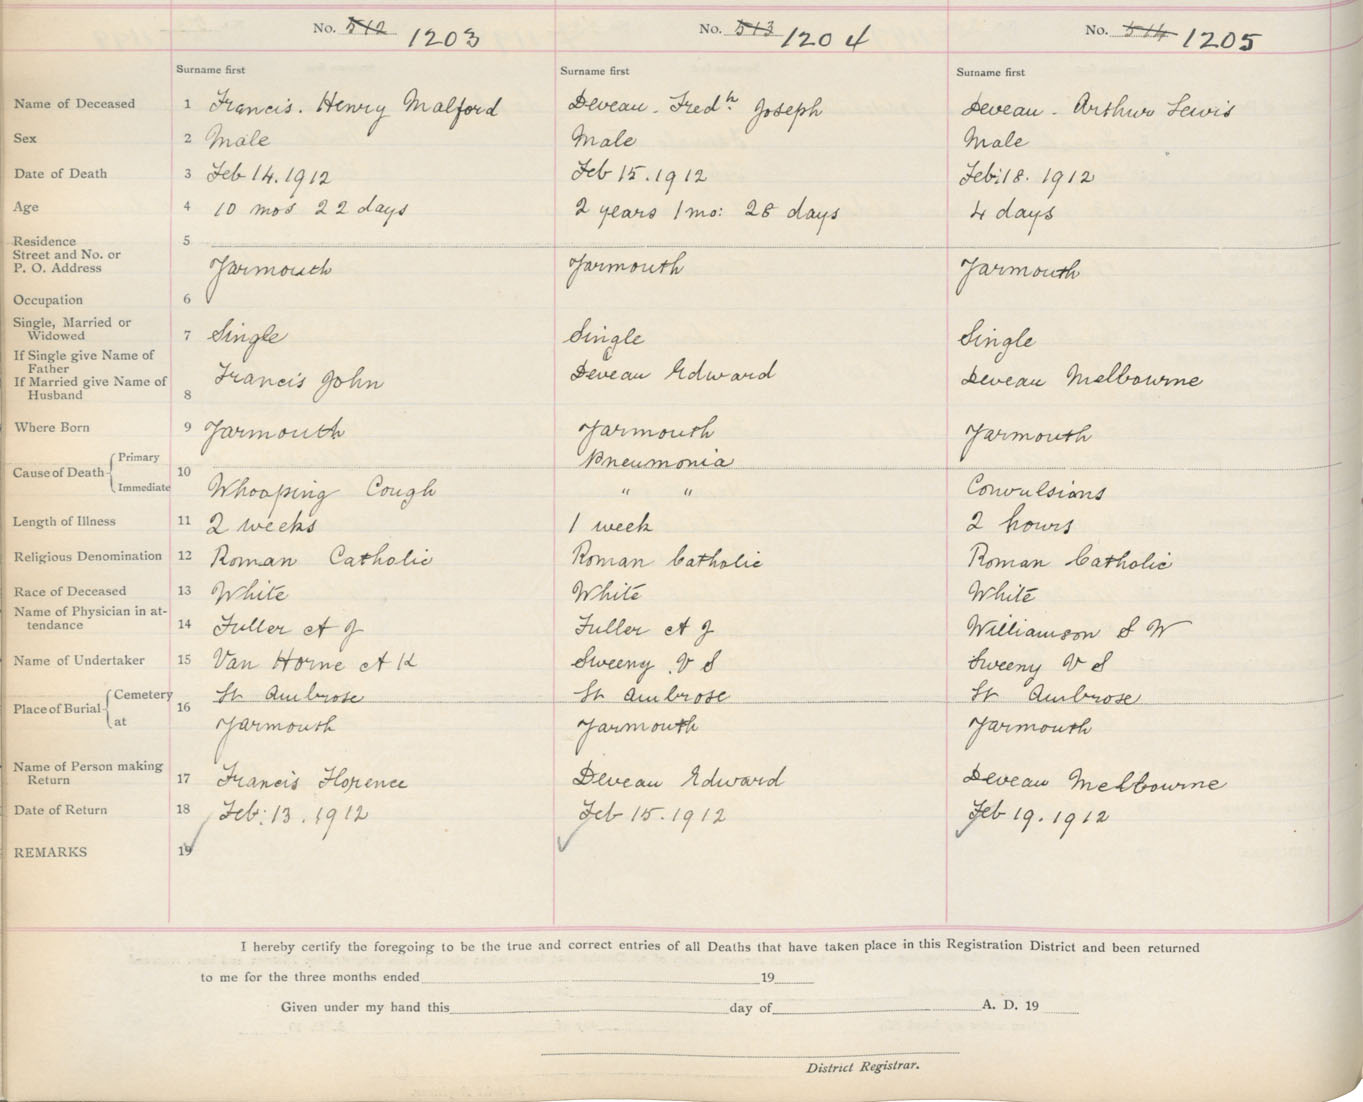 No. 512 1203 No. 513 1204 No. 514 1205
Surname first Surname first Surname first
Name of Deceased 1 Francis. Henry Malford Deveau. Fredk. Joseph Deveau. Arthur Lewis
Sex 2 Male Male Male
Date of Death 3 Feb 14.1912 Feb 15.1912 Feb:18. 1912
Age 4 10 mos 22 days 2 years 1 mo: 28 days 4 days
Residence 5
Street and No. or
P. O. Address Yarmouth Yarmouth Yarmouth
Occupation 6
Single, Married or
Widowed 7 Single Single Single
If Single give Name of
Father
If Married give Name of
Husband 8 Francis John Deveau Edward Deveau Melbourne
Where Born 9 Yarmouth Yarmouth Yarmouth
Cause of Death Primary 10 Pneumonia
Immediate Whooping Cough " " Convulsions
Length of Illness 11 2 weeks 1 week 2 hours
Religious Denomination 12 Roman Catholic Roman Catholic Roman Catholic
Race of Deceased 13 White White White
Name of Physician in at-
tendance 14 Fuller A J Fuller A J Williamson S W
Name of Undertaker 15 Van Horne A K Sweeny V S Sweeny V S
Place of Burial Cemetery 16 St Ambrose St Ambrose St Ambrose
at Yarmouth Yarmouth Yarmouth
Name of Person making
Return 17 Francis Florence Deveau Edward Deveau Melbourne
Date of Return 18 Feb: 13. 1912 Feb 15.1912 Feb 19.1912
REMARKS 19
I hereby certify the foregoing to be the true and correct entries of all Deaths that have taken place in this Registration District and been returned
to me for the three months ended 19
Given under my hand this day of A. D. 19
District Registrar.